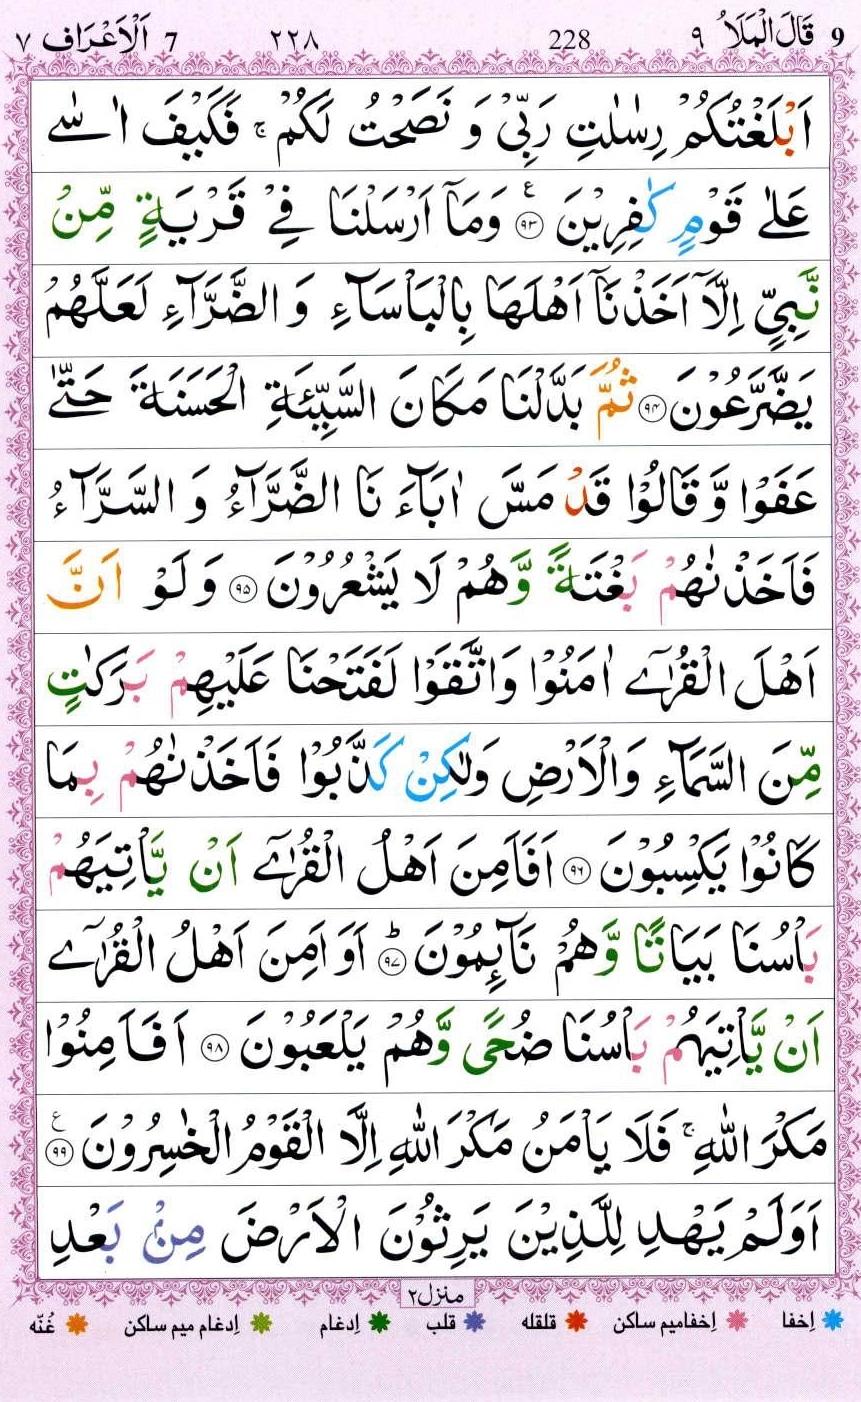 9 قَالَ الْمَلَاُ ٩ 228 ٢٢٨ 7 اَلْاَعْرَاف ٧
اَبْلَغْتُكُمْ رِسٰلٰتِ رَبِّیْ وَ نَصَحْتُ لَكُمْ ۚ فَكَیْفَ اٰسٰی
عَلٰی قَوْمٍ كٰفِرِیْنَ ۝٩٣ ع وَمَاۤ اَرْسَلْنَا فِیْ قَرْیَةٍ مِّنْ
نَّبِیٍّ اِلَّاۤ اَخَذْنَاۤ اَهْلَهَا بِالْبَاْسَآءِ وَ الضَّرَّآءِ لَعَلَّهُمْ
یَضَّرَّعُوْنَ ۝٩٤ ثُمَّ بَدَّلْنَا مَكَانَ السَّیِّئَةِ الْحَسَنَةَ حَتّٰی
عَفَوْا وَّ قَالُوْا قَدْ مَسَّ اٰبَآءَ نَا الضَّرَّآءُ وَ السَّرَّآءُ
فَاَخَذْنٰهُمْ بَغْتَةً وَّ هُمْ لَا یَشْعُرُوْنَ ۝٩٥ وَ لَوْ اَنَّ
اَهْلَ الْقُرٰۤی اٰمَنُوْا وَاتَّقَوْا لَفَتَحْنَا عَلَیْهِمْ بَرَكٰتٍ
مِّنَ السَّمَآءِ وَالْاَرْضِ وَلٰكِنْ كَذَّبُوْا فَاَخَذْنٰهُمْ بِمَا
كَانُوْا یَكْسِبُوْنَ ۝٩٦ اَفَاَمِنَ اَهْلُ الْقُرٰۤی اَنْ یَّاْتِیَهُمْ
بَاْسُنَا بَیَاتًا وَّ هُمْ نَآئِمُوْنَ ؕ۝٩٧ اَوَ اَمِنَ اَهْلُ الْقُرٰۤی
اَنْ یَّاْتِیَهُمْ بَاْسُنَا ضُحًی وَّ هُمْ یَلْعَبُوْنَ ۝٩٨ اَفَاَمِنُوْا
مَكْرَ اللّٰهِ ۚ فَلَا یَاْمَنُ مَكْرَ اللّٰهِ اِلَّا الْقَوْمُ الْخٰسِرُوْنَ ۝٩٩ ع
اَوَلَمْ یَهْدِ لِلَّذِیْنَ یَرِثُوْنَ الْاَرْضَ مِنْۢ بَعْدِ
منزل٢
اِخفا اِخفامیم ساکن قلقله قلب اِدغام اِدغام میم ساکن غُنّه